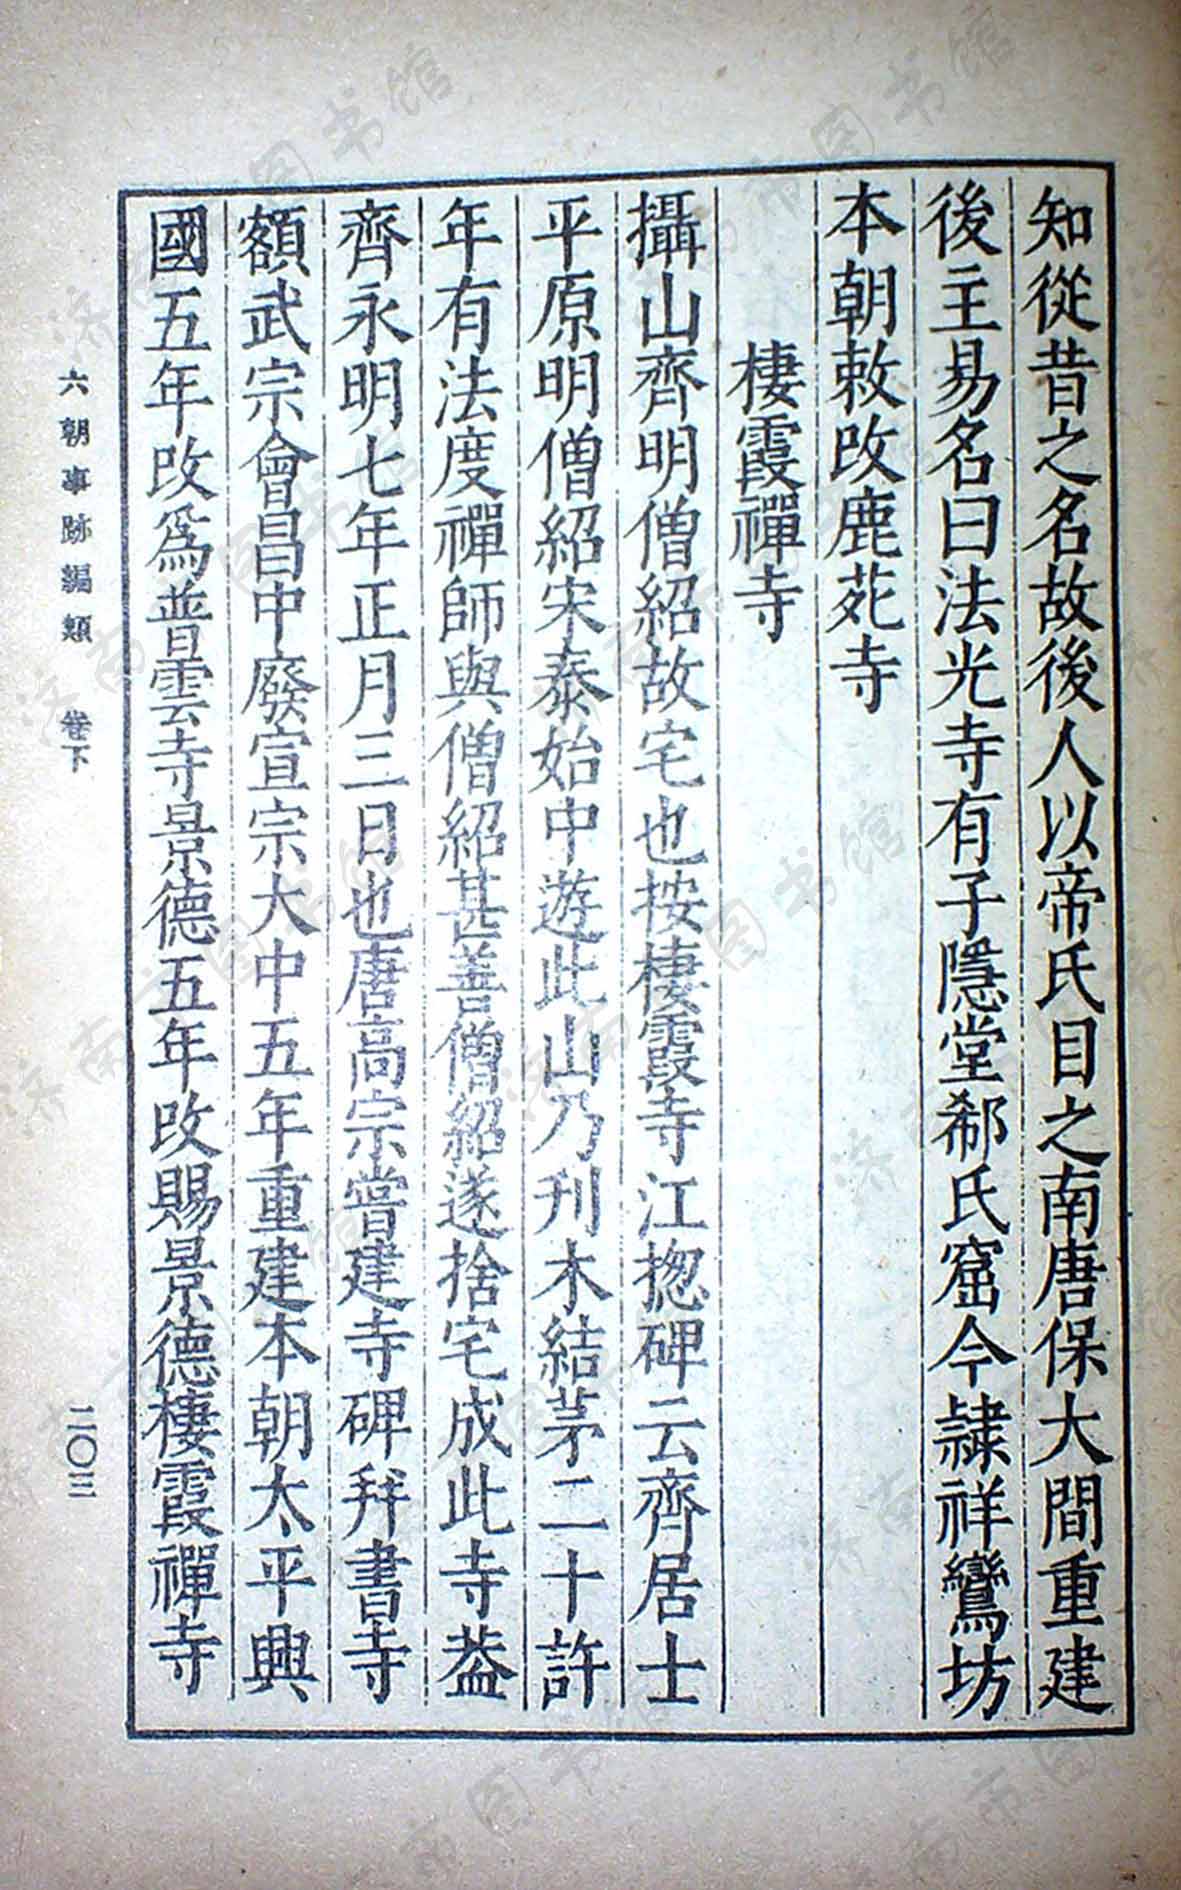 知從昔之名故後人以帝氏目之南唐保大間重建
後主易名曰法光寺有子隱堂郗氏窟今隷祥鸞坊
本朝敕改鹿苑寺
棲霞禪寺
攝山齊明僧紹故宅也按棲霞寺江揔碑云齊居士
平原明僧紹宋泰始中遊此山乃刋木結茅二十許
年有法度禪師與僧紹甚善僧紹遂捨宅成此寺葢
齊永明七年正月三日也唐高宗嘗建寺碑拜書寺
額武宗會昌中廢宣宗大中五年重建本朝太平興
國五年改爲普雲寺景德五年改賜景德棲霞禪寺
六朝事跡編類 卷下
二〇三
济南市图书馆